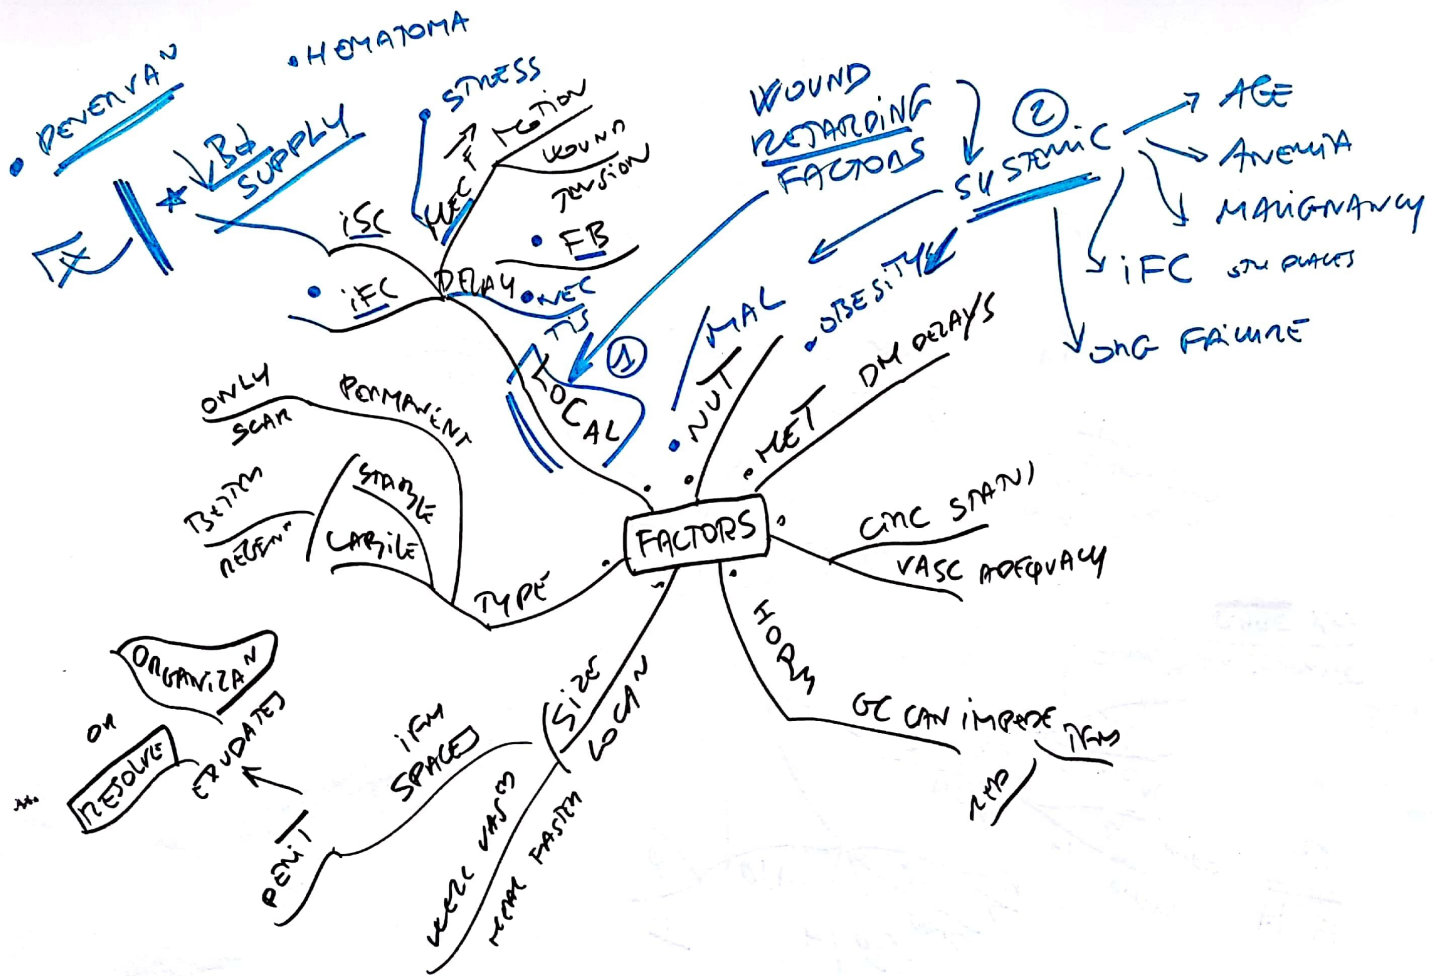 • HEMATOMA
• DENERVAN
↓ Bld
SUPPLY
• STRESS
F
MOTION
WOUND
TENSION
MEC
iSC
• FB
DELAY
• iFC
• NEC
TIS
WOUND
RETARDING
FACTORS
SYSTEMIC
2
AGE
ANEMIA
MALIGNANCY
iFC OTH PLACES
ORG FAILURE
1
LOCAL
MAL
• NUT
• OBESITY
• MET
DM DELAYS
FACTORS
CIRC STATUS
VASC ADEQUACY
HORM
GC CAN IMPEDE
IFM
REP
SIZE
LOCAN
WELL VASC
HEAL FASTER
IFM
SPACES
PERIT
EXUDATES
ORGANIZAN
OR
RESOLVE
TYPE
PERMANENT
ONLY
SCAR
STABLE
LABILE
BETTER
REGEN